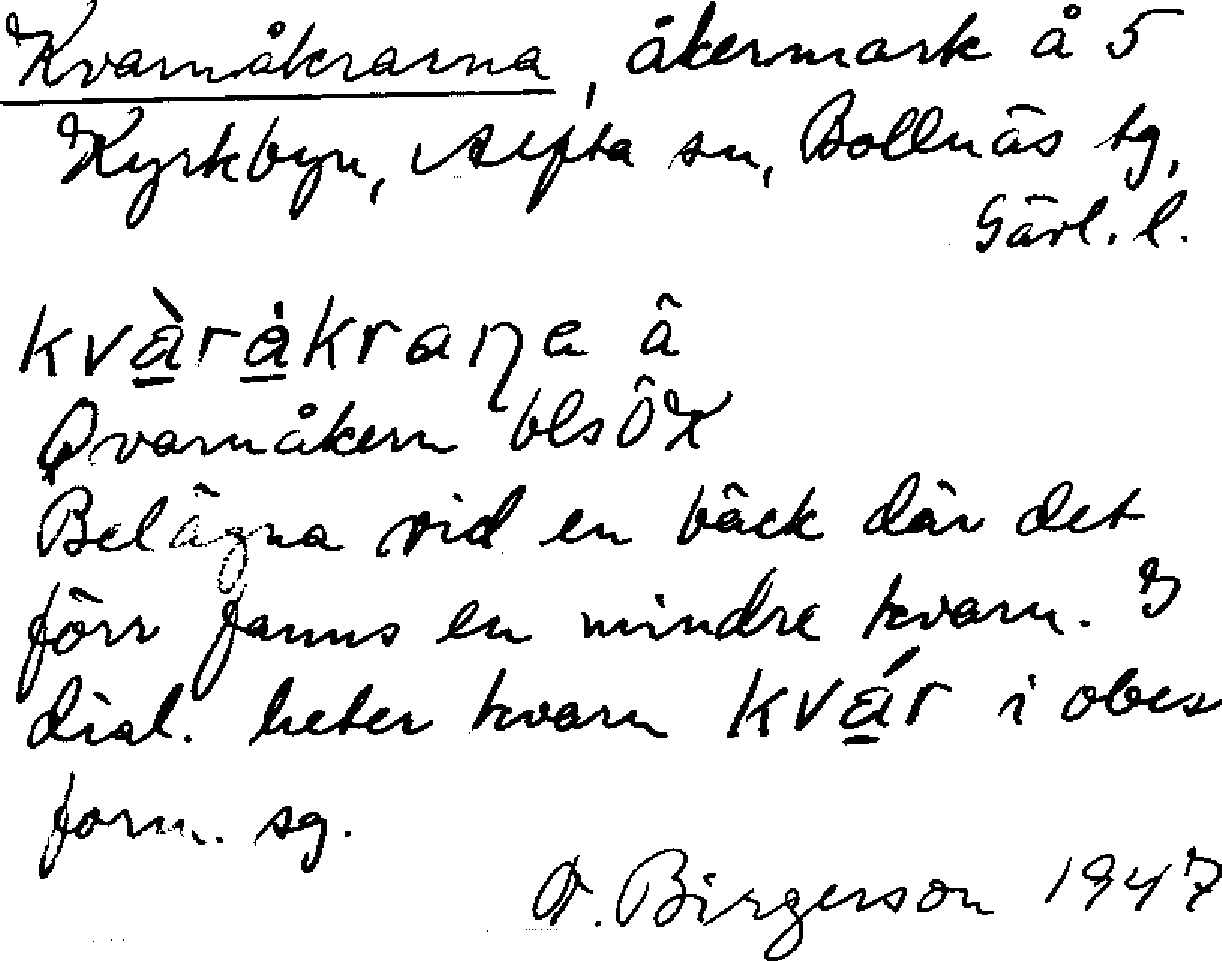 Kvarnåkrarna, åkermark å 5
Kyrkbyn, Alfta sn, Bollnäs tg,
Gävl. l.
kvàràkraŋe ä
Qvarnåkern blsÖK
Belägna vid en bäck där det
förr fanns en mindre kvarn. I
dial. heter kvarn kvár i obes
form. sg.
Birgerson 1947